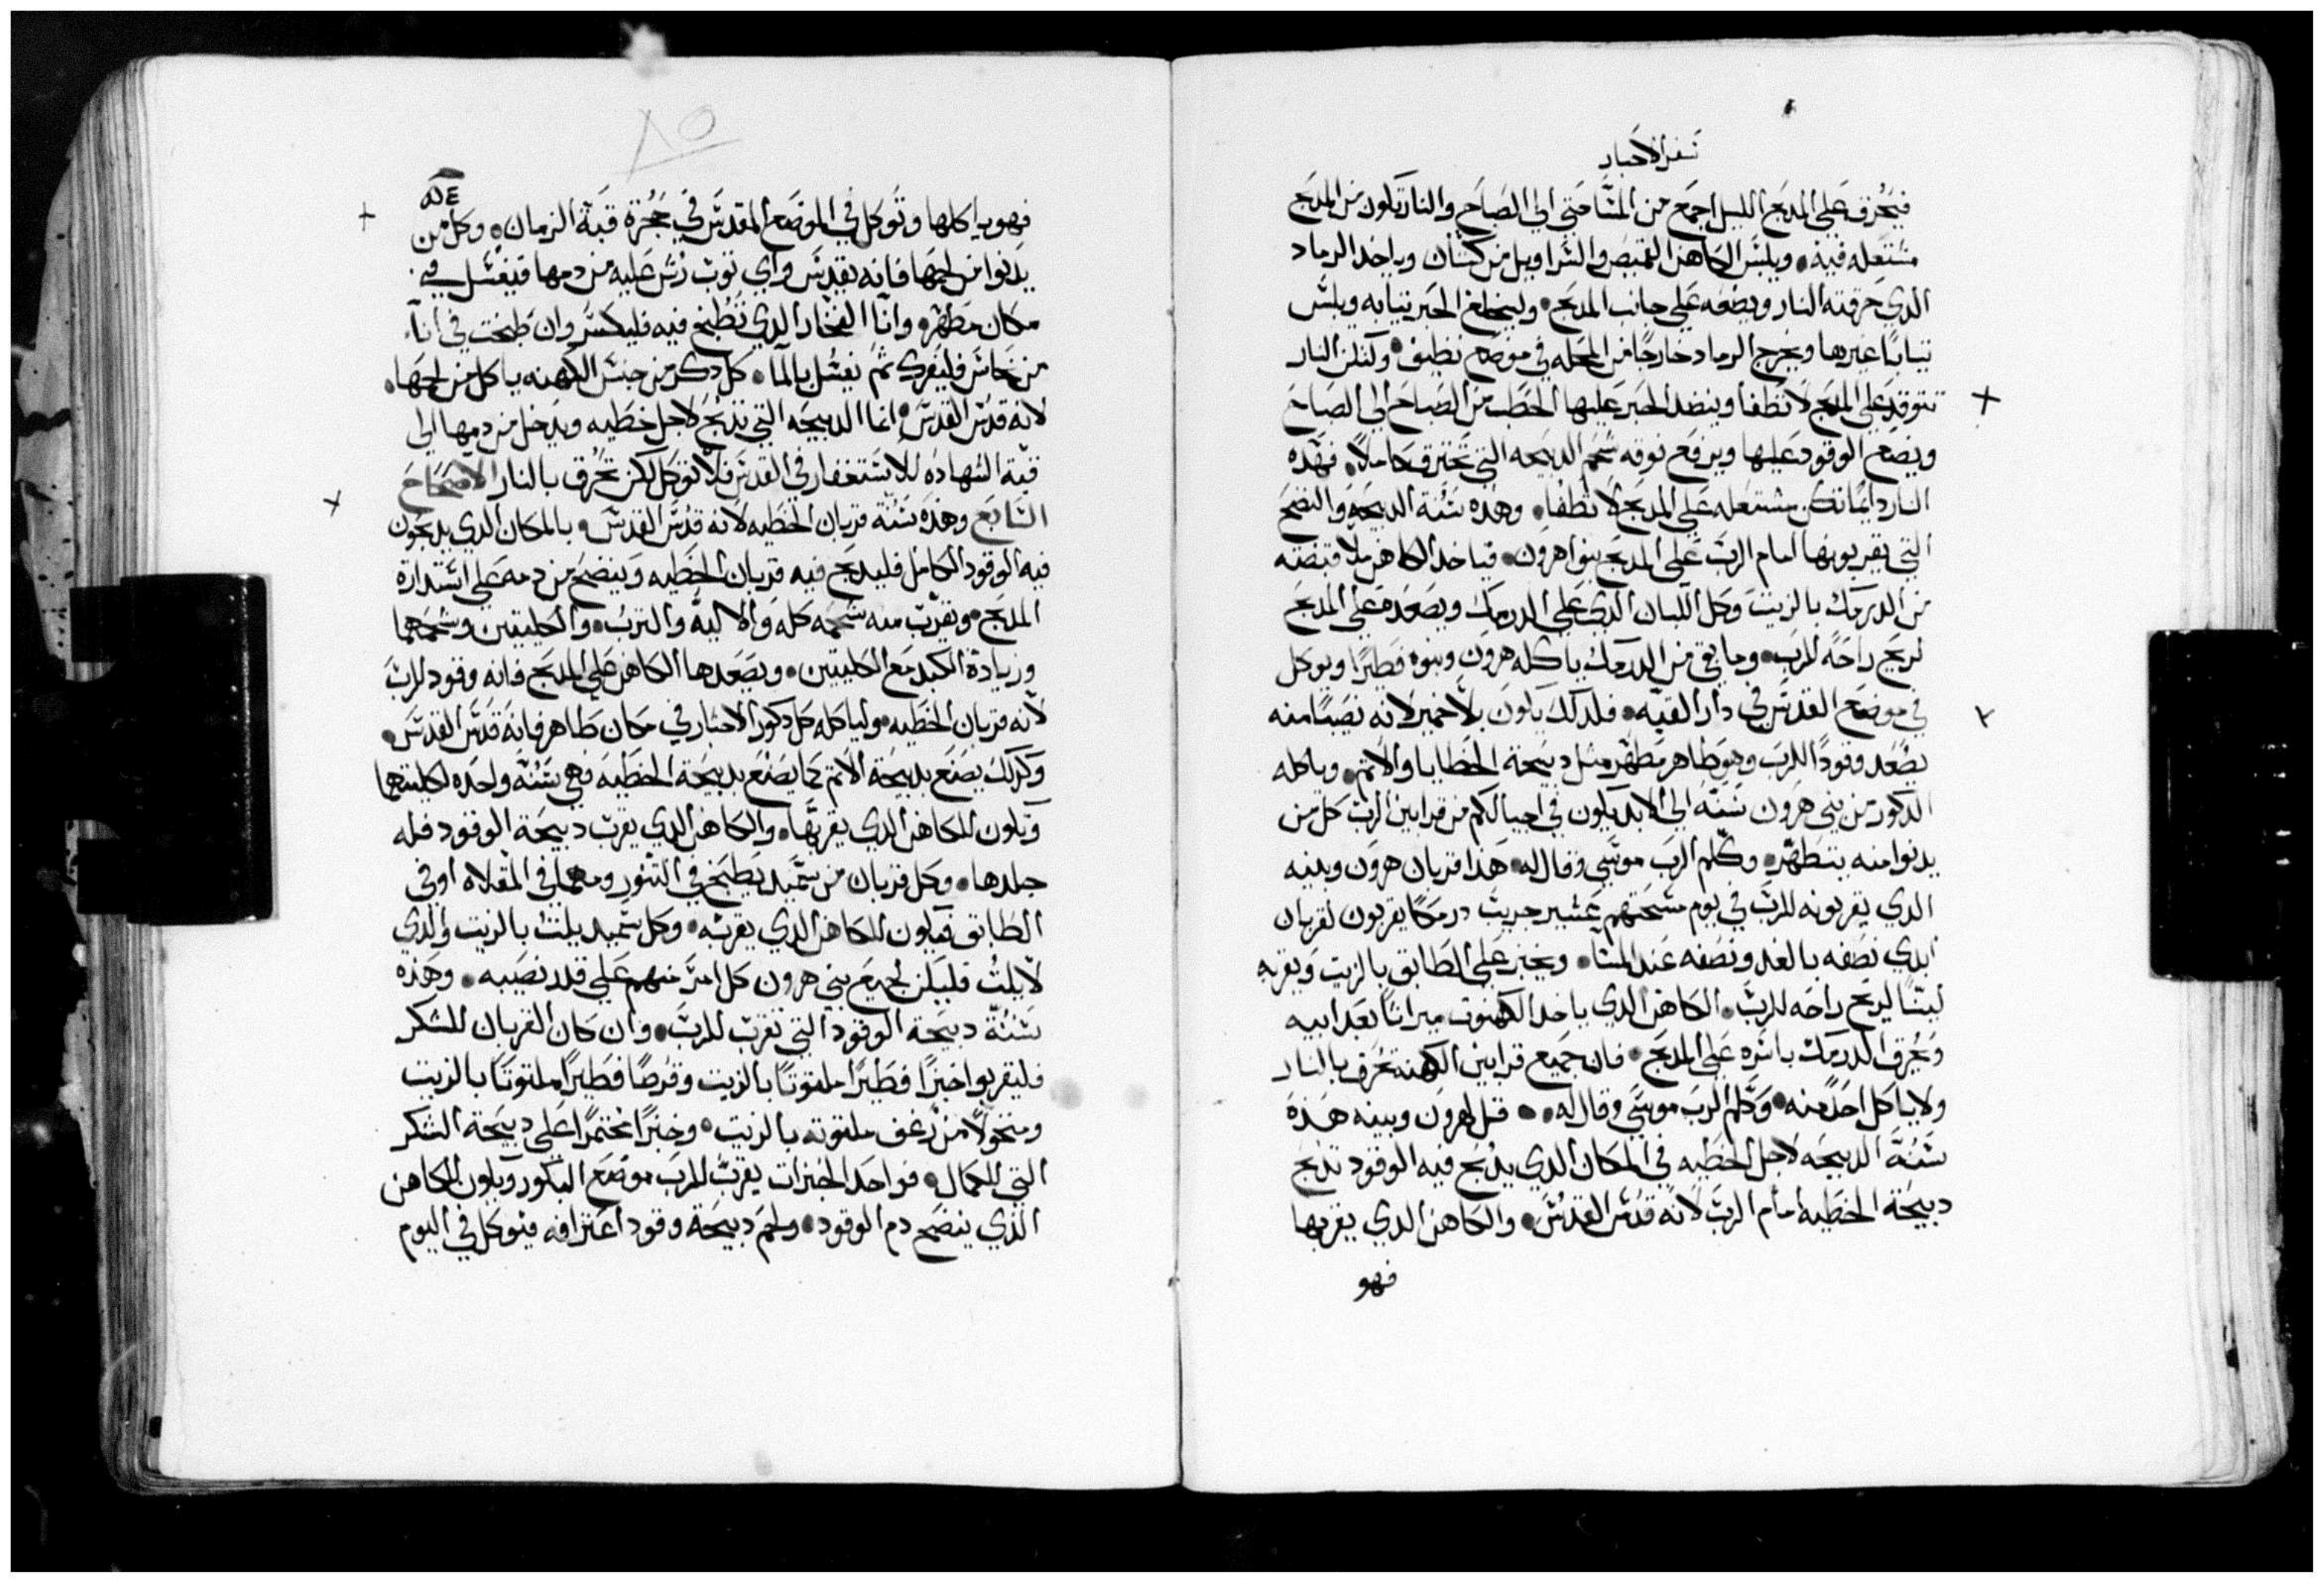 سفر الاحبار
فيحرق على المدبح الليل اجمع من المسا حتى الى الصباح والنار تكون من المدبح
مشتعله فيه ويلبس الكاهن القميص والسراويل من كتان وياخد الرماد
الدي حرقته النار ويضعه على جانب المدبح وليخلع الحبر ثيابه ويلبس
ثيابا غيرها ويخرج الرماد خارجا من المحله في موضع نظيف ولتكن النار
تتوقد على المدبح لا تطفا وينضد الحبر عليها الحطب من الصباح الى الصباح
ويضع الوقود عليها ويرفع فوقه شحم الدبيحه التي تحترق كاملا فهده
النار دايما تكن مشتعله على المدبح لا تطفا وهده سنة الدبيحه والنضح
التي يقربونها امام الرب على المدبح بنوا هرون فياخد الكاهن ملا قبضته
من الدرمك بالزيت وكل اللبان الدي على الدرمك ويصعده على المدبح
لريح راحه للرب وما بقي من الدرمك ياكله هرون وبنوه فطيرا ويوكل
في موضع القدس في دار القبه فلدلك يكون بلا خمير لانه نصيبا منه
يصعد وقودا للرب وهو طاهر مطهر مثل دبيحة الخطايا والاثم وياكله
الدكور من بني هرون سنة الى الابد يكون في اجيالكم من قرابين الرب كل من
يدنوا منه يتطهر وكلم الرب موسى وقال له هدا قربان هرون وبنيه
الدي يقربونه للرب في يوم مسحتهم عشير جريب درمكا يقربون لقربان
ابدي نصفه بالغد ونصفه عند المسا ويخبز على الطابق بالزيت ويقربه
لينا لريح راحه للرب الكاهن الدي ياخد الكهنوت ميراثا بعد ابيه
ويحرق الدرمك باسره على المدبح فان جميع قرابين الكهنة تحرق بالنار
ولا ياكل احد منه وكلم الرب موسى وقال له قل لهرون وبنيه هده
سنة الدبيحه لاجل الخطيه في المكان الدي يدبح فيه الوقود تدبح
دبيحة الخطيه امام الرب لانه قدس القدس والكاهن الدي يقربها
فهو
٨٥
فهو ياكلها وتوكل في الموضع المقدس في حجرة قبة الزمان وكل من
يدنوا من لحمها فانه يقدس واي ثوب رش عليه من دمها فيغسل في
مكان مطهر وانا الفخار الدي تطبخ فيه فليكسر وان طبخت في اناء
من نحاس فليفرك ثم يغسل بالما كل دكر من جنس الكهنه ياكل من لحمها
لانه قدس القدس انما الدبيحه التي تدبح لاجل خطيه ويدخل من دمها الى
قبة الشهاده للاستغفار في القدس فلا توكل لكن تحرق بالنار الاصحاح
السابع وهده سنة قربان الخطيه لانه قدس القدس بالمكان الدي يدبحون
فيه الوقود الكامل فليدبح فيه قربان الخطيه وينضح من دمه على استدارة
المدبح ويقرب منه شحمه كله والالية والترب والكليتين وشحمهما
وزيادة الكبد مع الكليتين ويصعدها الكاهن على المدبح فانه وقود للرب
لانه قربان الخطيه ولياكله كل دكور الاحبار في مكان طاهر فانه قدس القدس
وكدلك يصنع بدبيحة الاثم كما يصنع بدبيحة الخطيه فهي سنة واحده لكليتهما
وتكون للكاهن الدي يقربها والكاهن الدي يقرب دبيحة الوقود فله
جلدها وكل قربان من سميد يطبخ في التنور ومهما في المقلاه او في
الطابق فيكون للكاهن الدي يقربه وكل سميد يلت بالزيت والدي
لا يلت فليكن لجميع بني هرون كل امر منهم على قدر نصيبه وهده
سنة دبيحة الوقود التي تقرب للرب وان كان القربان للشكر
فليقربوا خبزا فطيرا ملتوتا بالزيت وقرصا فطيرا ملتوتا بالزيت
ومنخولا من رغف ملتوته بالزيت وخبزا مختمرا على دبيحة الشكر
التي للكمال فواحد الخبزات يقرب للرب موضع البكور ويكون للكاهن
الدي ينضح دم الوقود ولحم دبيحة وقود اعترافه فيوكل في اليوم